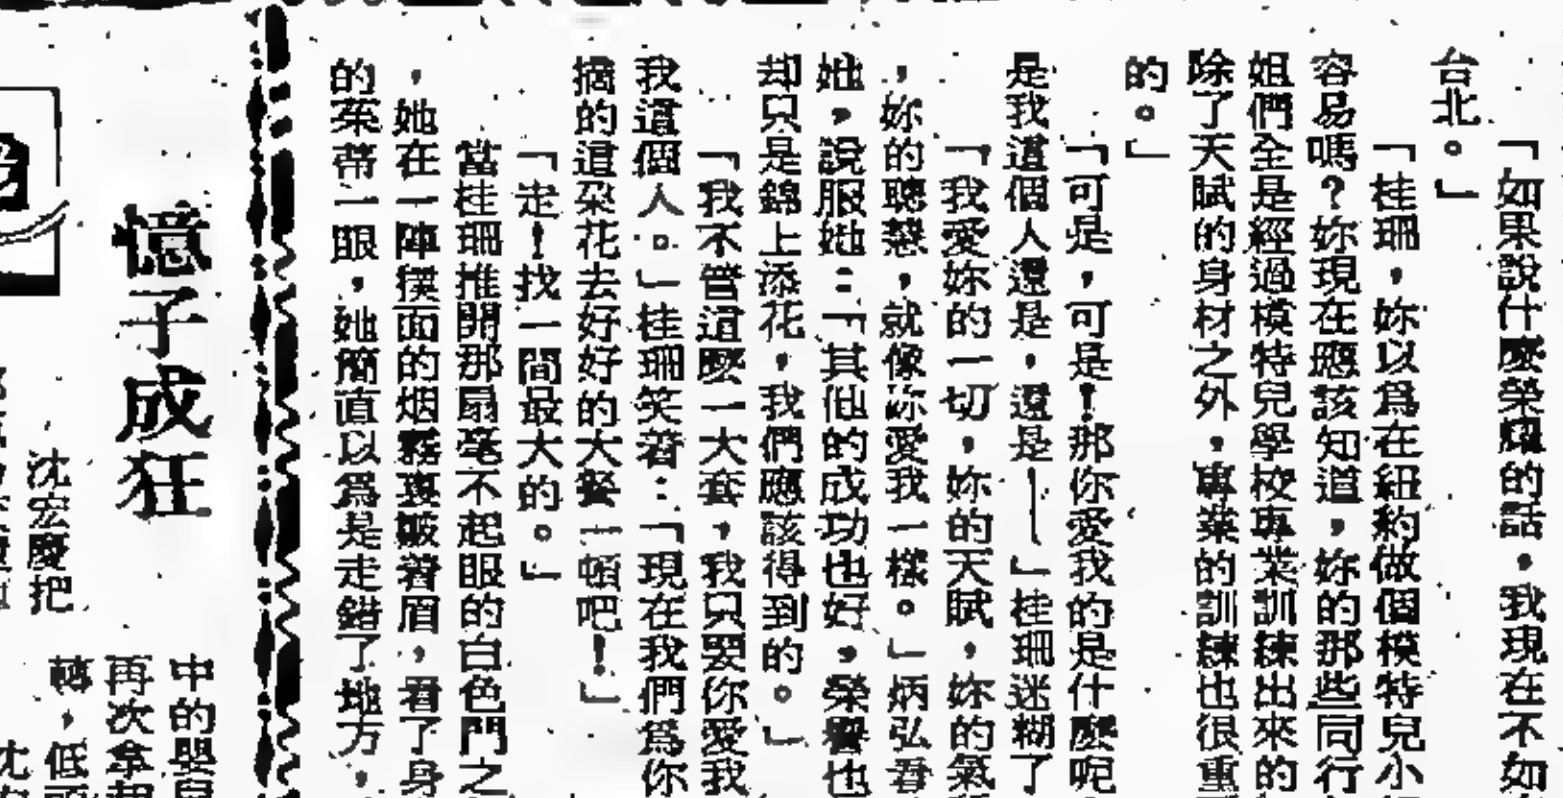 「如果說什麼榮耀的話,我現在不如
台北。」
「桂珊,妳以爲在紐約做個模特兒小
容易嗎?妳現在應該知道,妳的那些同行
姐們全是經過模特兒學校專業訓練出來的
除了天賦的身材之外,專業的訓練也很重
的。」
「可是,可是!那你愛我的是什麼呢
是我這個人還是,還是——」桂珊迷糊了
「我愛妳的一切,妳的天賦,妳的氣
,妳的聰慧,就像妳愛我一樣。」炳弘看
她,說服她:「其他的成功也好,榮譽也
却只是錦上添花,我們應該得到的。」
「我不管這麼一大套,我只要你愛我
我這個人。」桂珊笑着:「現在我們爲你
摘的這朶花去好好的大餐一頓吧!」
「走!找一間最大的。」
當桂珊推開那扇毫不起眼的白色門之
,她在一陣撲面的烟霧裏皺着眉,看了身
的茱蒂一眼,她簡直以爲是走錯了地方,
憶子成狂
沈宏慶把
中的嬰兒
再次拿起
轉,低頭
沈